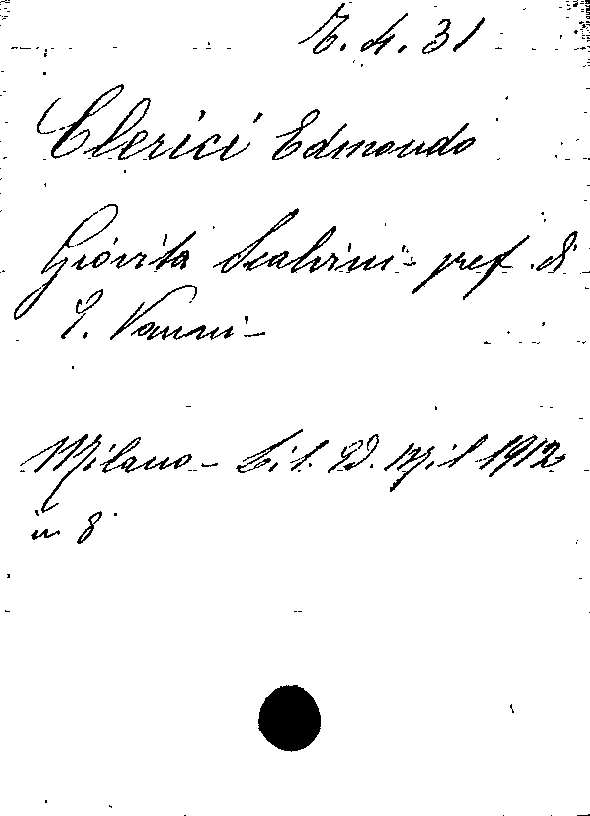 7.4.31
Clerici Edmondo
Giovita Scalvini - pref. di
E. Vanni -
Milano - Lit. Ed. Mil 1912
in 8°